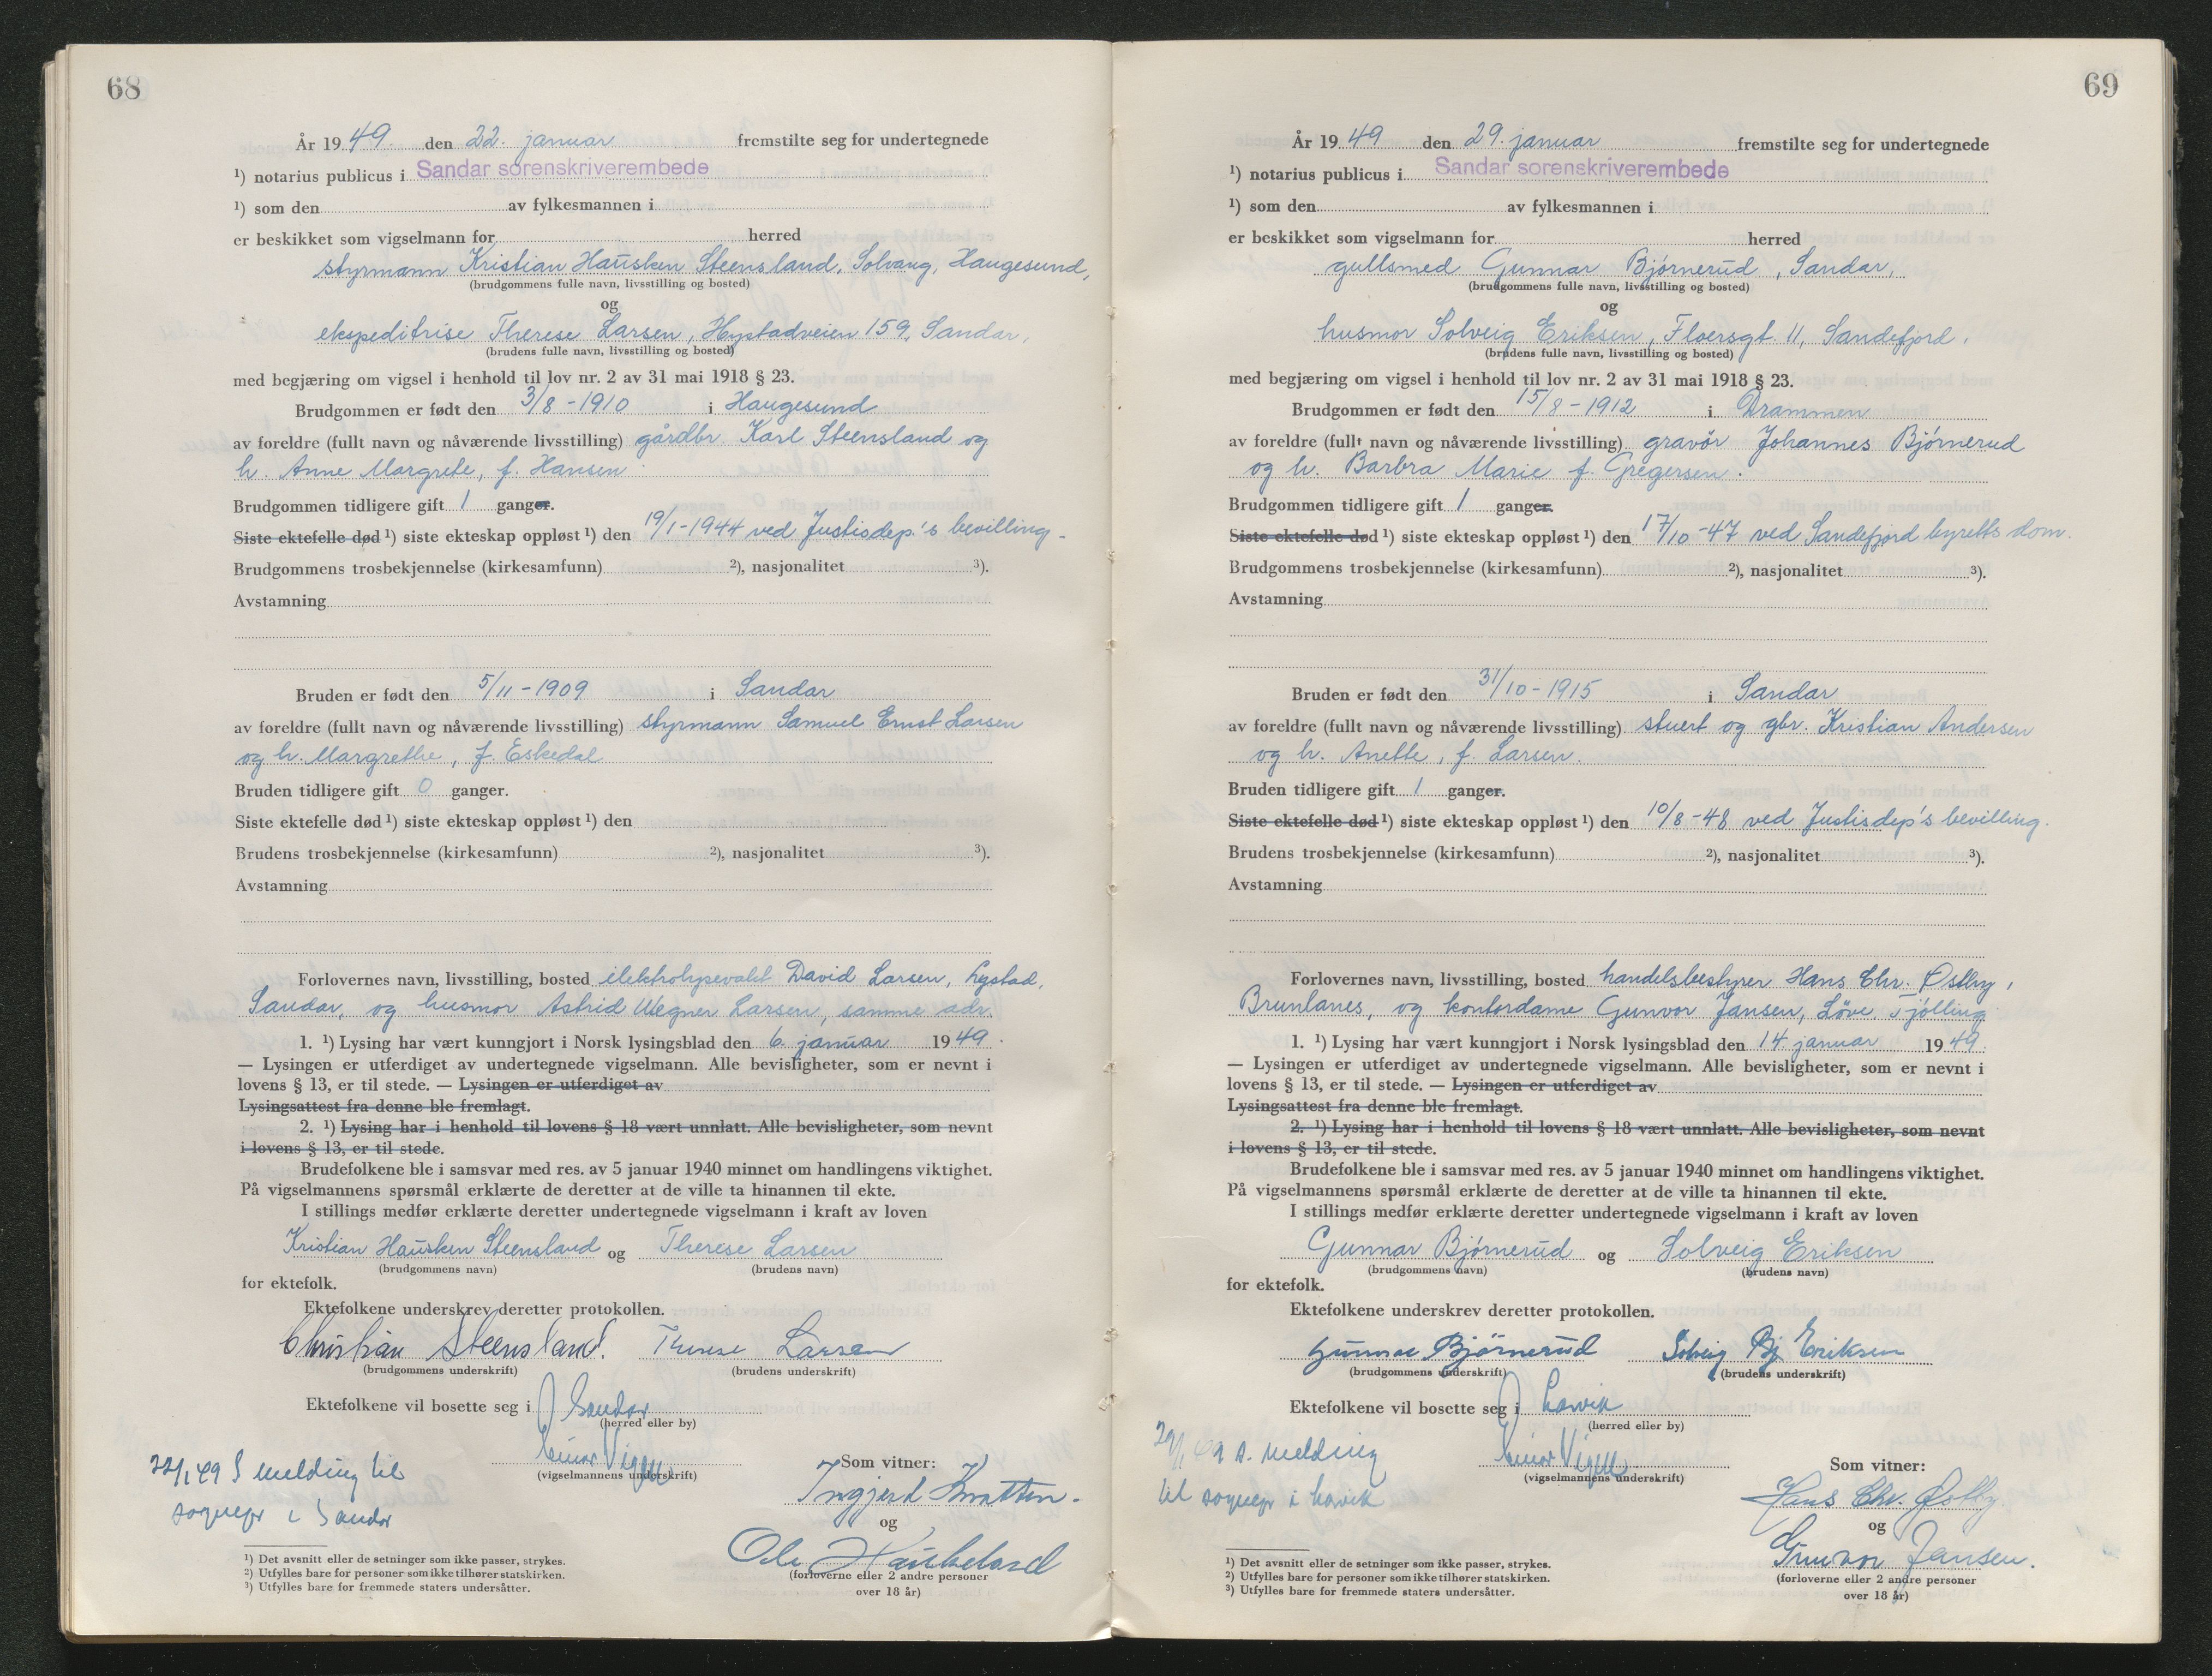 68
År 19 49. den 22. januar fremstilte seg for undertegnede
¹) notarius publicus i Sandar sorenskriverembede
¹) som den av fylkesmannen i
er beskikket som vigselmann for herred
styrmann Kristian Hausken Steensland, Solvang, Haugesund,
(brudgommens fulle navn, livsstilling og bosted)
og
ekspeditrise Therese Larsen, Hystadveien 159, Sandar,
(brudens fulle navn, livsstilling og bosted)
med begjæring om vigsel i henhold til lov nr. 2 av 31 mai 1918 § 23.
Brudgommen er født den 3/8 - 1910 i Haugesund
av foreldre (fullt navn og nåværende livsstilling) gårdbr. Karl Steensland og
h. Anne Margrete, f. Hansen
Brudgommen tidligere gift 1 ganger.
Siste ektefelle død ¹) siste ekteskap oppløst ¹) den 19/1-1944 ved Justisdep.'s bevilling.
Brudgommens trosbekjennelse (kirkesamfunn) ²), nasjonalitet ³).
Avstamning
Bruden er født den 5/11-1909 i Sandar
av foreldre (fullt navn og nåværende livsstilling) styrmann Samuel Ernst Larsen
og h. Margrethe, f. Eskedal
Bruden tidligere gift 0 ganger.
Siste ektefelle død ¹) siste ekteskap oppløst ¹) den
Brudens trosbekjennelse (kirkesamfunn) ²), nasjonalitet ³).
Avstamning
Forlovernes navn, livsstilling, bosted David Larsen, Hystad,
Sandar, og husmor Astrid Wegner Larsen, samme adr.
1. ¹) Lysing har vært kunngjort i Norsk lysingsblad den 6. januar 1949.
— Lysingen er utferdiget av undertegnede vigselmann. Alle bevisligheter, som er nevnt i
lovens § 13, er til stede. — Lysingen er utferdiget av
Lysingsattest fra denne ble fremlagt.
2. ¹) Lysing har i henhold til lovens § 18 vært unnlatt. Alle bevisligheter, som nevnt
i lovens § 13, er til stede.
Brudefolkene ble i samsvar med res. av 5 januar 1940 minnet om handlingens viktighet.
På vigselmannens spørsmål erklærte de deretter at de ville ta hinannen til ekte.
I stillings medfør erklærte deretter undertegnede vigselmann i kraft av loven
Kristian Hausken Steensland og Therese Larsen
(brudgommens navn) (brudens navn)
for ektefolk.
Ektefolkene underskrev deretter protokollen.
Christian Steensland. Therese Larsen
(brudgommens underskrift) (brudens underskrift)
Ektefolkene vil bosette seg i Sandar
(herred eller by)
(vigselmannens underskrift)
22/1 49 S melding til
sognepr i Sandar
Som vitner:
Ingjerd
og
Ole Haukeland
(forloverne eller 2 andre personer
over 18 år)
¹) Det avsnitt eller de setninger som ikke passer, strykes.
²) Utfylles bare for personer som ikke tilhører statskirken.
³) Utfylles bare for fremmede staters undersåtter.
69
År 19 49 den 29. januar fremstilte seg for undertegnede
¹) notarius publicus i Sandar sorenskriverembede
¹) som den av fylkesmannen i
er beskikket som vigselmann for herred
gullsmed Gunnar Bjørnerud, Sandar,
(brudgommens fulle navn, livsstilling og bosted)
og
husmor Solveig Eriksen, Floersgt. 11, Sandefjord,
(brudens fulle navn, livsstilling og bosted)
med begjæring om vigsel i henhold til lov nr. 2 av 31 mai 1918 § 23.
Brudgommen er født den 15/8-1912 i Drammen
av foreldre (fullt navn og nåværende livsstilling) gravør Johannes Bjørnerud
og h. Barbra Marie f. Gregersen.
Brudgommen tidligere gift 1 ganger.
Siste ektefelle død ¹) siste ekteskap oppløst ¹) den 17/10-47 ved Sandefjord byretts dom.
Brudgommens trosbekjennelse (kirkesamfunn) ²), nasjonalitet ³).
Avstamning
Bruden er født den 31/10-1915 i Sandar
av foreldre (fullt navn og nåværende livsstilling) stuert og gbr. Kristian Andersen
og h. Anette, f. Larsen.
Bruden tidligere gift 1 ganger.
Siste ektefelle død ¹) siste ekteskap oppløst ¹) den 10/8-48 ved Justisdep's bevilling.
Brudens trosbekjennelse (kirkesamfunn) ²), nasjonalitet ³).
Avstamning
Forlovernes navn, livsstilling, bosted handelsbestyrer Hans Chr. Østby,
Brunlanes, og kontordame Gunvor Jansen, Løve, Tjølling
1. ¹) Lysing har vært kunngjort i Norsk lysingsblad den 14. januar 1949.
— Lysingen er utferdiget av undertegnede vigselmann. Alle bevisligheter, som er nevnt i
lovens § 13, er til stede. — Lysingen er utferdiget av
Lysingsattest fra denne ble fremlagt.
2. ¹) Lysing har i henhold til lovens § 18 vært unnlatt. Alle bevisligheter, som nevnt
i lovens § 13, er til stede.
Brudefolkene ble i samsvar med res. av 5 januar 1940 minnet om handlingens viktighet.
På vigselmannens spørsmål erklærte de deretter at de ville ta hinannen til ekte.
I stillings medfør erklærte deretter undertegnede vigselmann i kraft av loven
Gunnar Bjørnerud og Solveig Eriksen
(brudgommens navn) (brudens navn)
for ektefolk.
Ektefolkene underskrev deretter protokollen.
Gunnar Bjørnerud Solveig Bj Eriksen
(brudgommens underskrift) (brudens underskrift)
Ektefolkene vil bosette seg i Larvik
(herred eller by)
(vigselmannens underskrift)
29/1 49 s. melding
til sognepr i Larvik
Som vitner:
Hans Chr. Østby
og
Gunvor Jansen.
(forloverne eller 2 andre personer
over 18 år)
¹) Det avsnitt eller de setninger som ikke passer, strykes.
²) Utfylles bare for personer som ikke tilhører statskirken.
³) Utfylles bare for fremmede staters undersåtter.